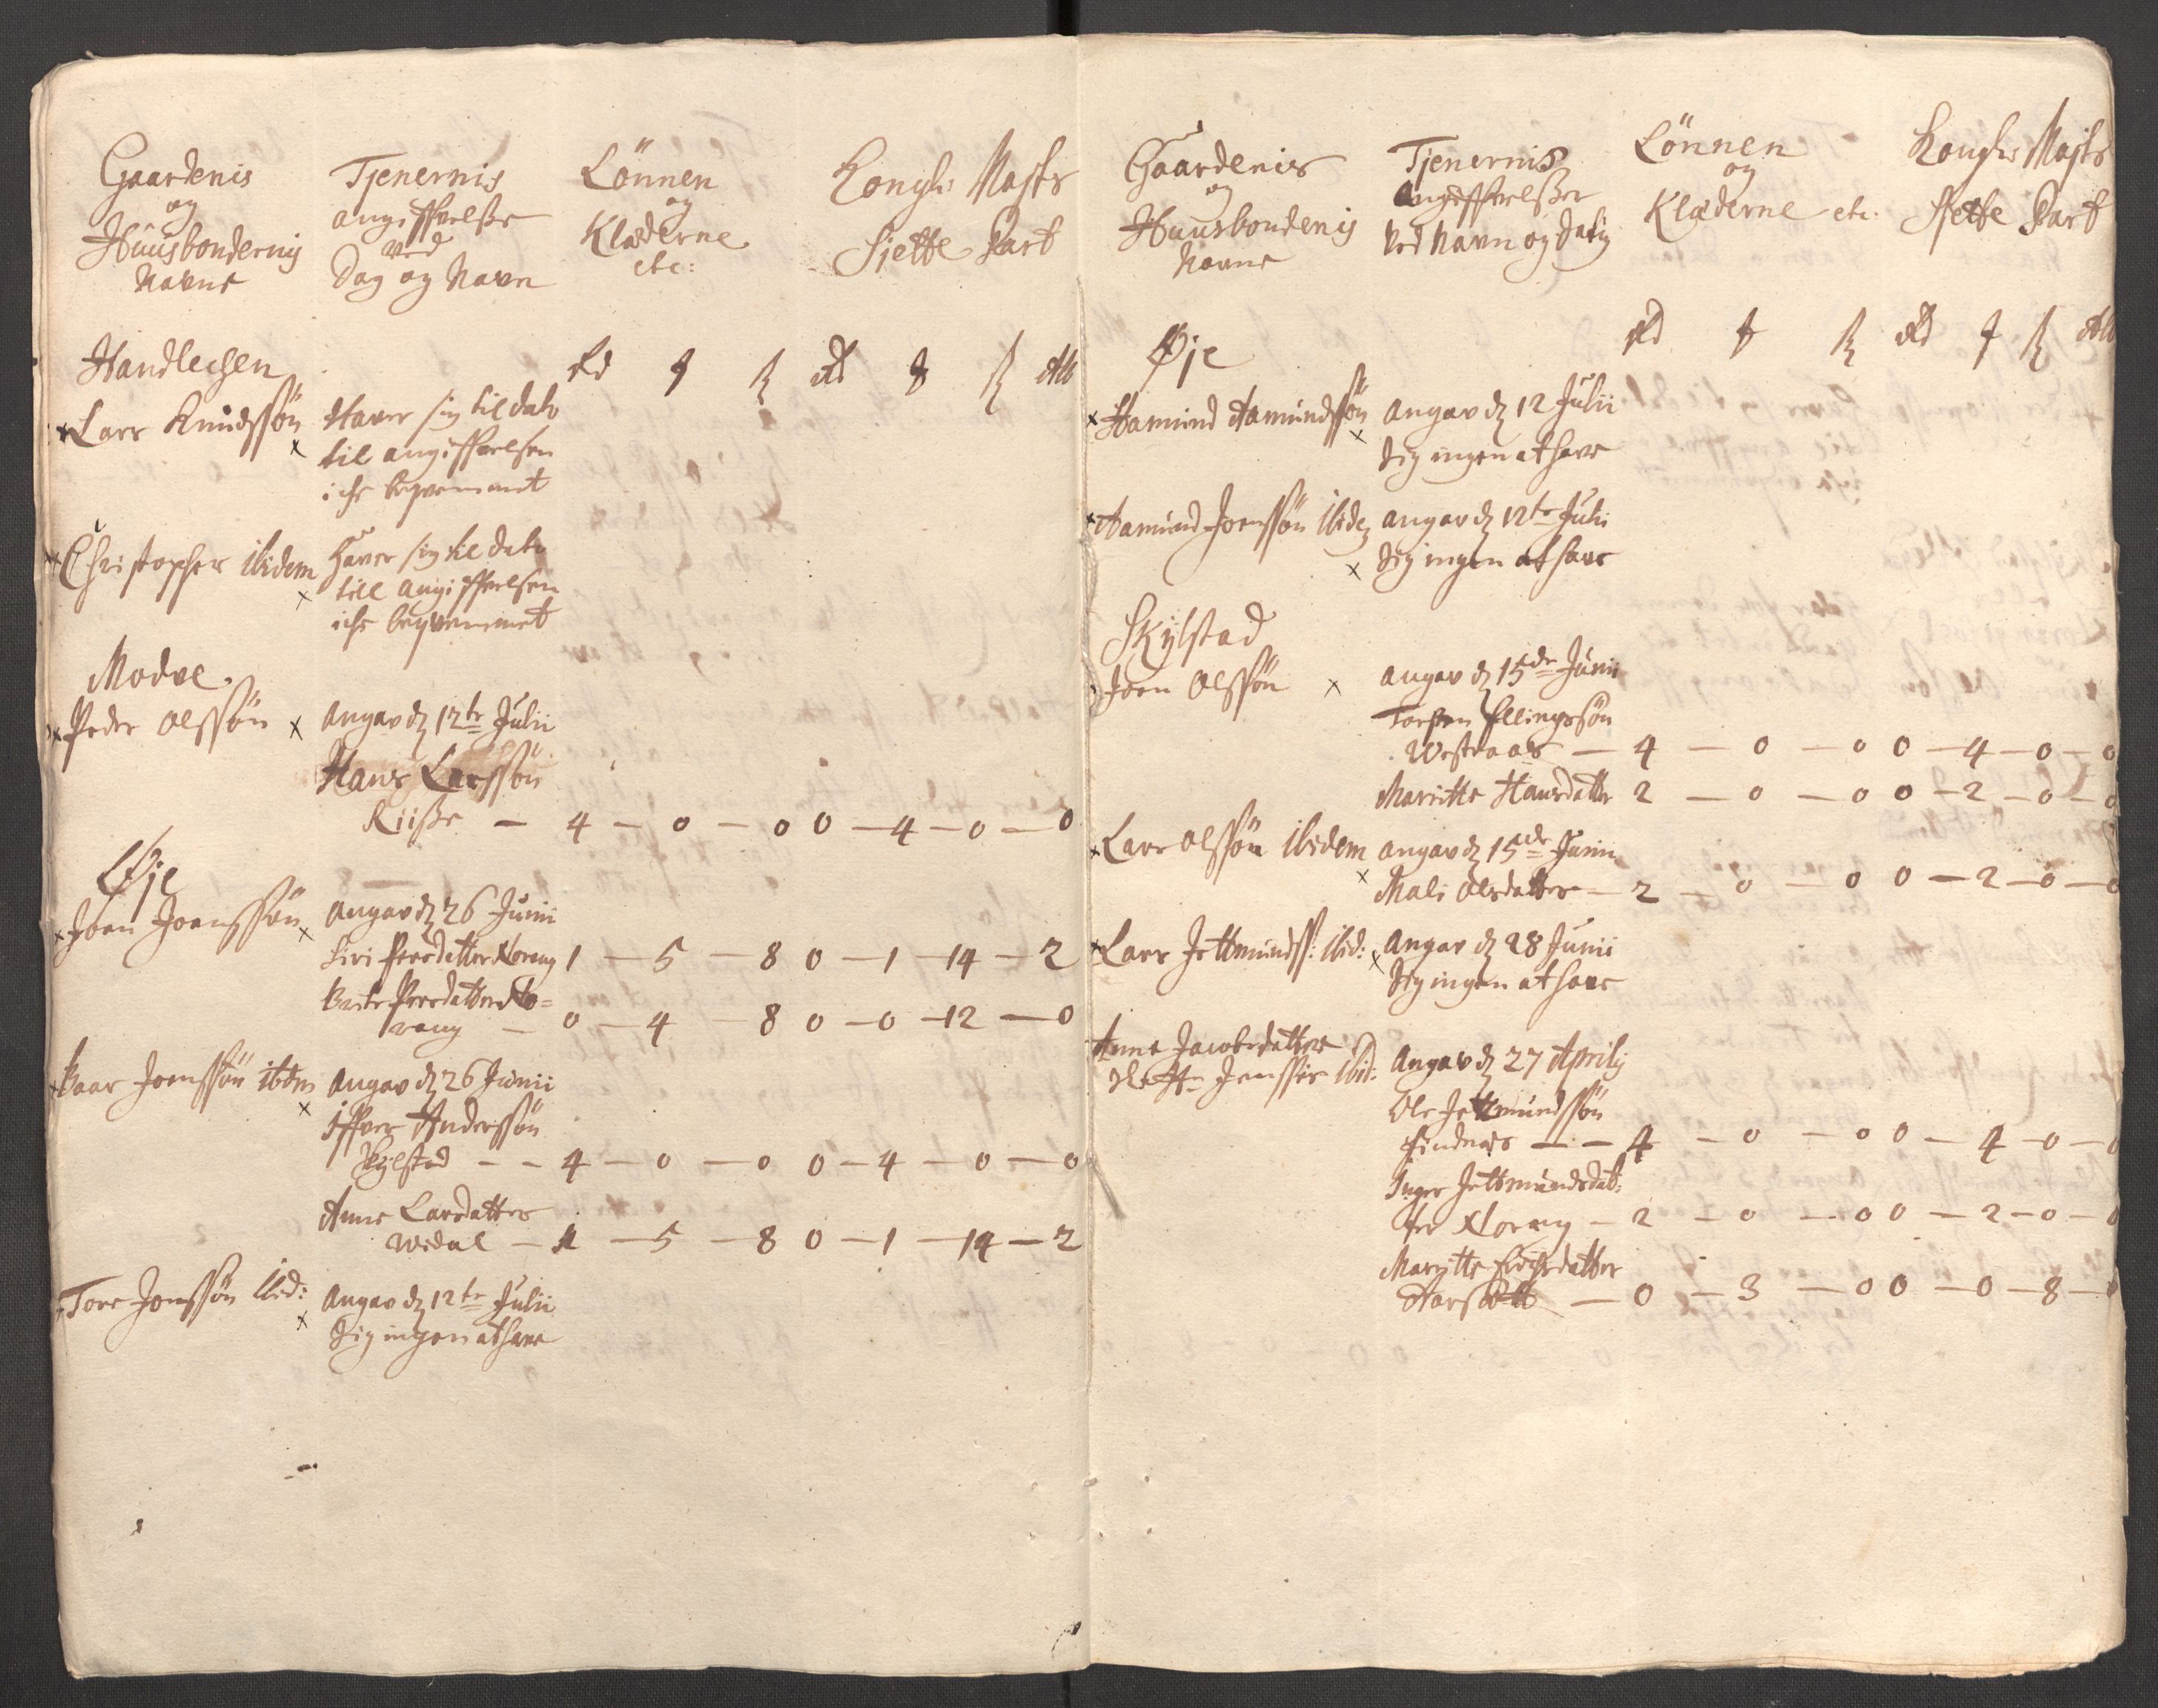 Gaardenis
og
Huusbondernis
Navne
Tjenernis
angiffvelsse
ved
Dag og Navn
Lönnen
og
Klæderne
etc:
Kongl: Majts
Siette Part
Handlechen
Rd
Alb
Lars Knudssøn
Haver sig til dato
til angiffvelsen
iche beqvemmet
Christopher ibidem
haver sig til dato
till angiffvelsen
iche beqvemmet
Modve
Peder Olssøn
Angav d 12te Julii
Hans Larssøn
Riisse — 4 — 0 — 0 0 — 4 — 0 — 0
Øje
Joen Joenssøn
angav d 26 Junii
Siri Persdatter Norang 1 — 5 — 8 0 — 1 — 14 — 2
Persdatter No=
rang — 0 — 4 — 8 0 — 0 — 12 — 0
Joenssøn ibdm
Angav d 26 Junii
Iffver Anderssøn
Skylstad — — 4 — 0 — 0 0 — 4 — 0 — 0
Anne Larsdatter
Widal — 1 — 5 — 8 0 — 1 — 14 — 2
Tore Jonssøn ibid:
Angav d 12te Julii
Sig ingen at have
Gaardenis
og
Huusbondenis
Navne
Tjenernis
Angiffvelsser
Ved Navn og Datis
Lönnen
og
Klæderne etc:
Kongl: Majts
Siette Part
Øje
Rd
Alb
Hamund Aamundssøn
angav d 12 Julii
Sig ingen at have
Aamund Joenssøn ibidem
angav d 12te Juli
Sig ingen at have
Skylstad
Joen Olssøn
angav d 15de Junii
Torsten Ellingssøn
Westraas — 4 — 0 — 0 0 — 4 — 0 — 0
Maritte Hansdatter 2 — 0 — 0 0 — 2 — 0 — 0
Lars Olssøn ibidem
angav d 15de Junii
Mali Olsdatter — 2 — 0 — 0 0 — 2 — 0 — 0
Lars Jettmundss: ibid:
Angav d 28 Junii
Sig ingen at have
Anne Jacobsdatter
Jenssis ibid:
Angav d 27 Aprilij
Ole Jettmundssøn
Findnes — — 4 — 0 — 0 0 — 4 — 0 — 0
Inger Jettmundsdat=
ter Norang — 2 — 0 — 0 0 — 2 — 0 — 0
Maritte Erichsdatter
— 0 — 3 — 0 0 — 0 — 8 — 0